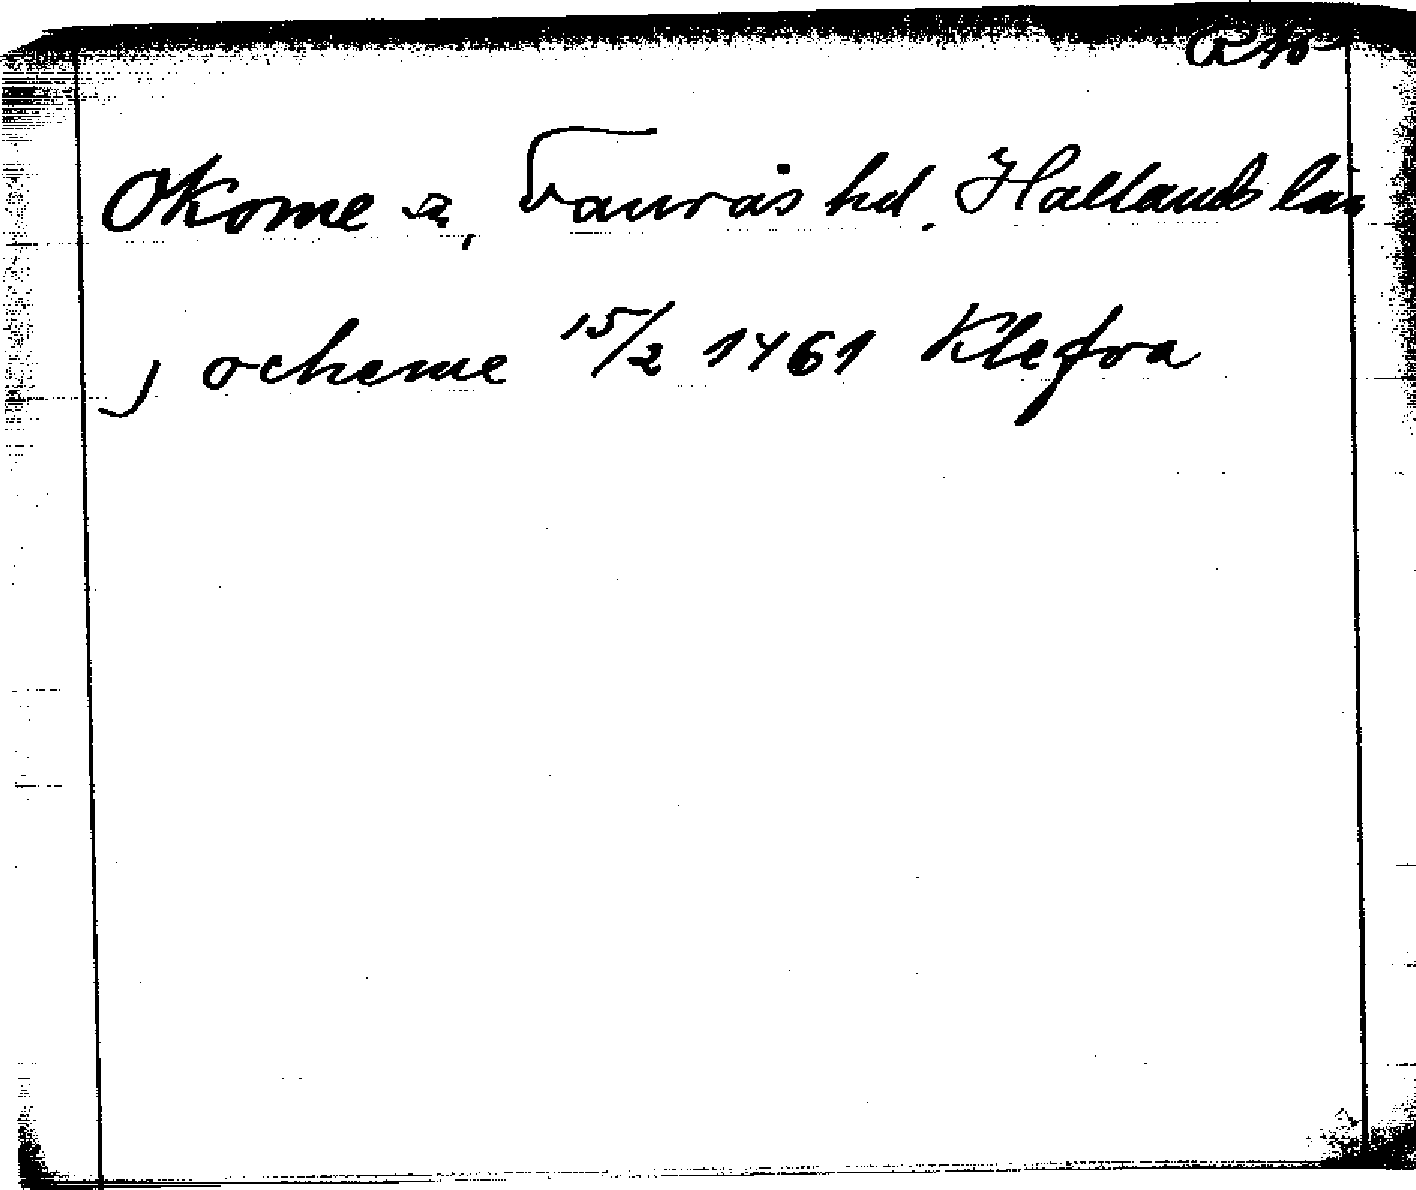 Okome sn, Faurås hd. Hallands län
j ockeme 15/2 1461 Klefva